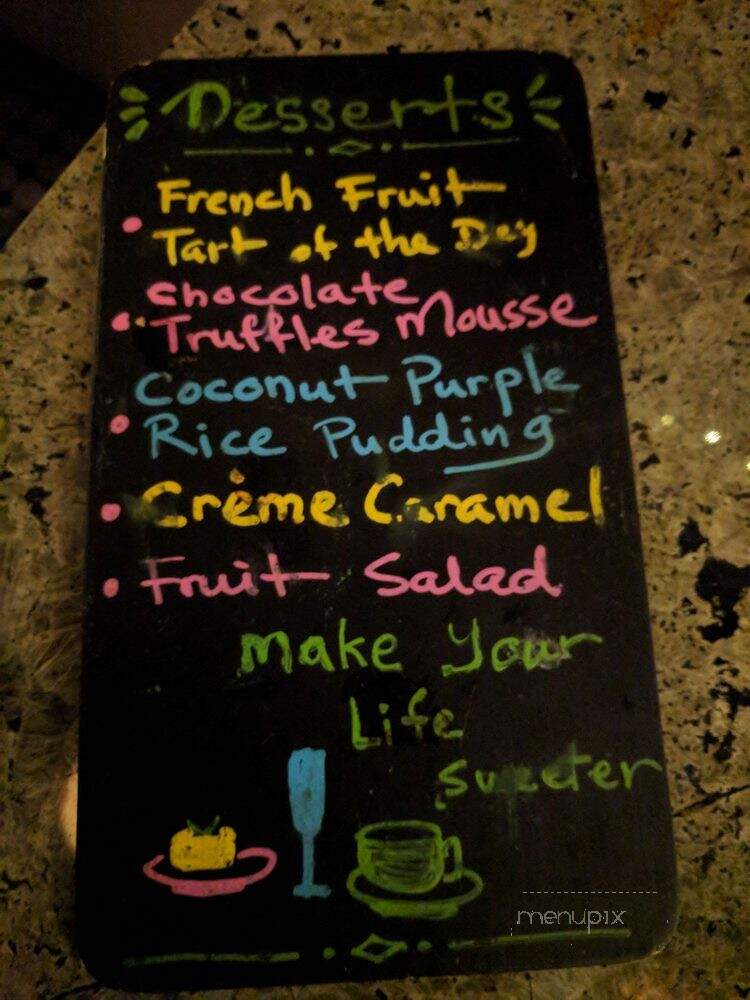 Desserts
French Fruit
Tart of the Day
Chocolate
Truffles Mousse
Coconut Purple
Rice Pudding
Crème Caramel
Fruit Salad
Make Your
Life
Sweeter
menupix